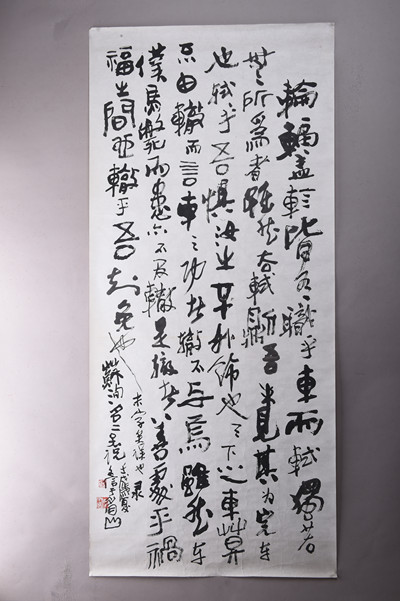 輪輻蓋軫皆有職乎車而軾獨若
無所爲者雖然去軾則吾未見其为完車
也軾乎吾懼汝之不外飾也天下之車莫
不由轍而言車之功者轍不与焉雖然車
僕馬斃而患亦不及轍是轍者善處乎禍
福之間也轍乎吾知免
末字 也录
蘇洵名二子説